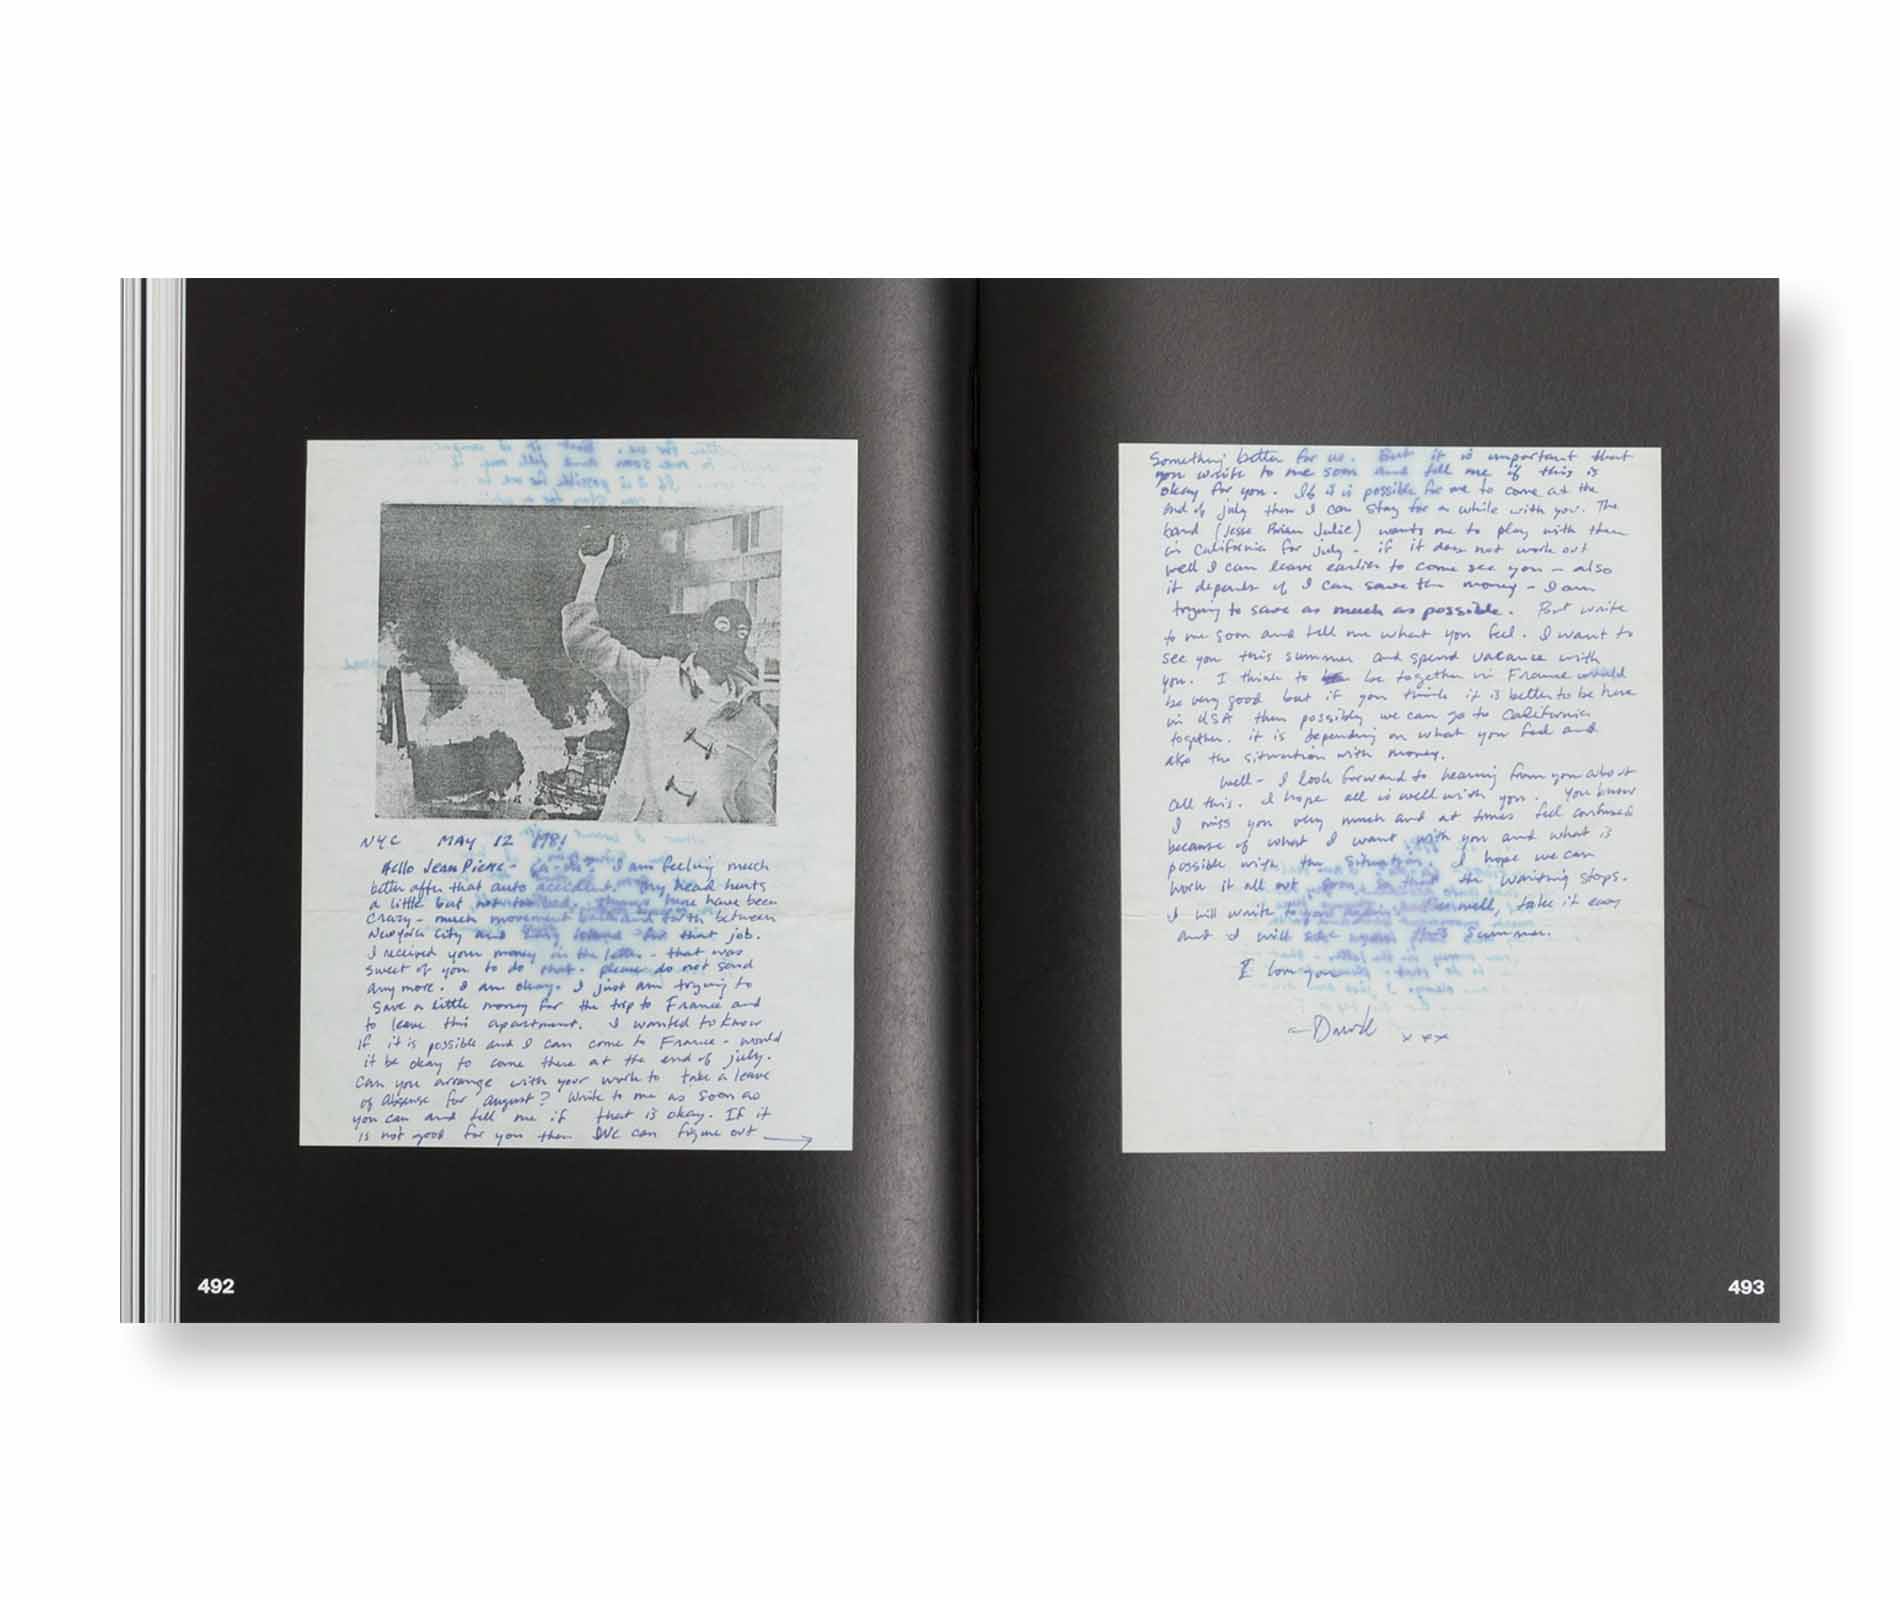 NYC MAY 12 1981
Hello Jean Pierre - Ça-va? I am feeling much
better after that auto accident. My head hurts
a little but not too bad. Things here have been
crazy - much movement back and forth between
New York City and Long Island for that job.
I received your money in the letter - that was
sweet of you to do that - please do not send
any more. I am okay. I just am trying to
save a little money for the trip to France and
to leave this apartment. I wanted to know
if it is possible and I can come to France - would
it be okay to come there at the end of july.
Can you arrange with your work to take a leave
of absense for august? Write to me as soon as
you can and tell me if that is okay. If it
is not good for you then we can figure out →
492
Something better for us. But it is important that
you write to me soon and tell me if this is
okay for you. If it is possible for me to come at the
end of july then I can stay for a while with you. The
band (Jesse Brian Julie) wants me to play with them
in California for july - if it does not work out
well I can leave earlier to come see you - also
it depends if I can save the money - I am
trying to save as much as possible. But write
to me soon and tell me what you feel. I want to
see you this summer and spend vacance with
you. I think to be together in France would
be very good but if you think it is better to be here
in USA then possibly we can go to California
together. it is depending on what you feel and
also the situation with money.
Well - I look forward to hearing from you about
all this. I hope all is well with you. You know
I miss you very much and at times feel confused
because of what I want with you and what is
possible with the situation. I hope we can
work it all out soon so that the waiting stops.
I will write to you again. Be well, take it easy
and I will see you this summer.
I love you
- David xxx
493